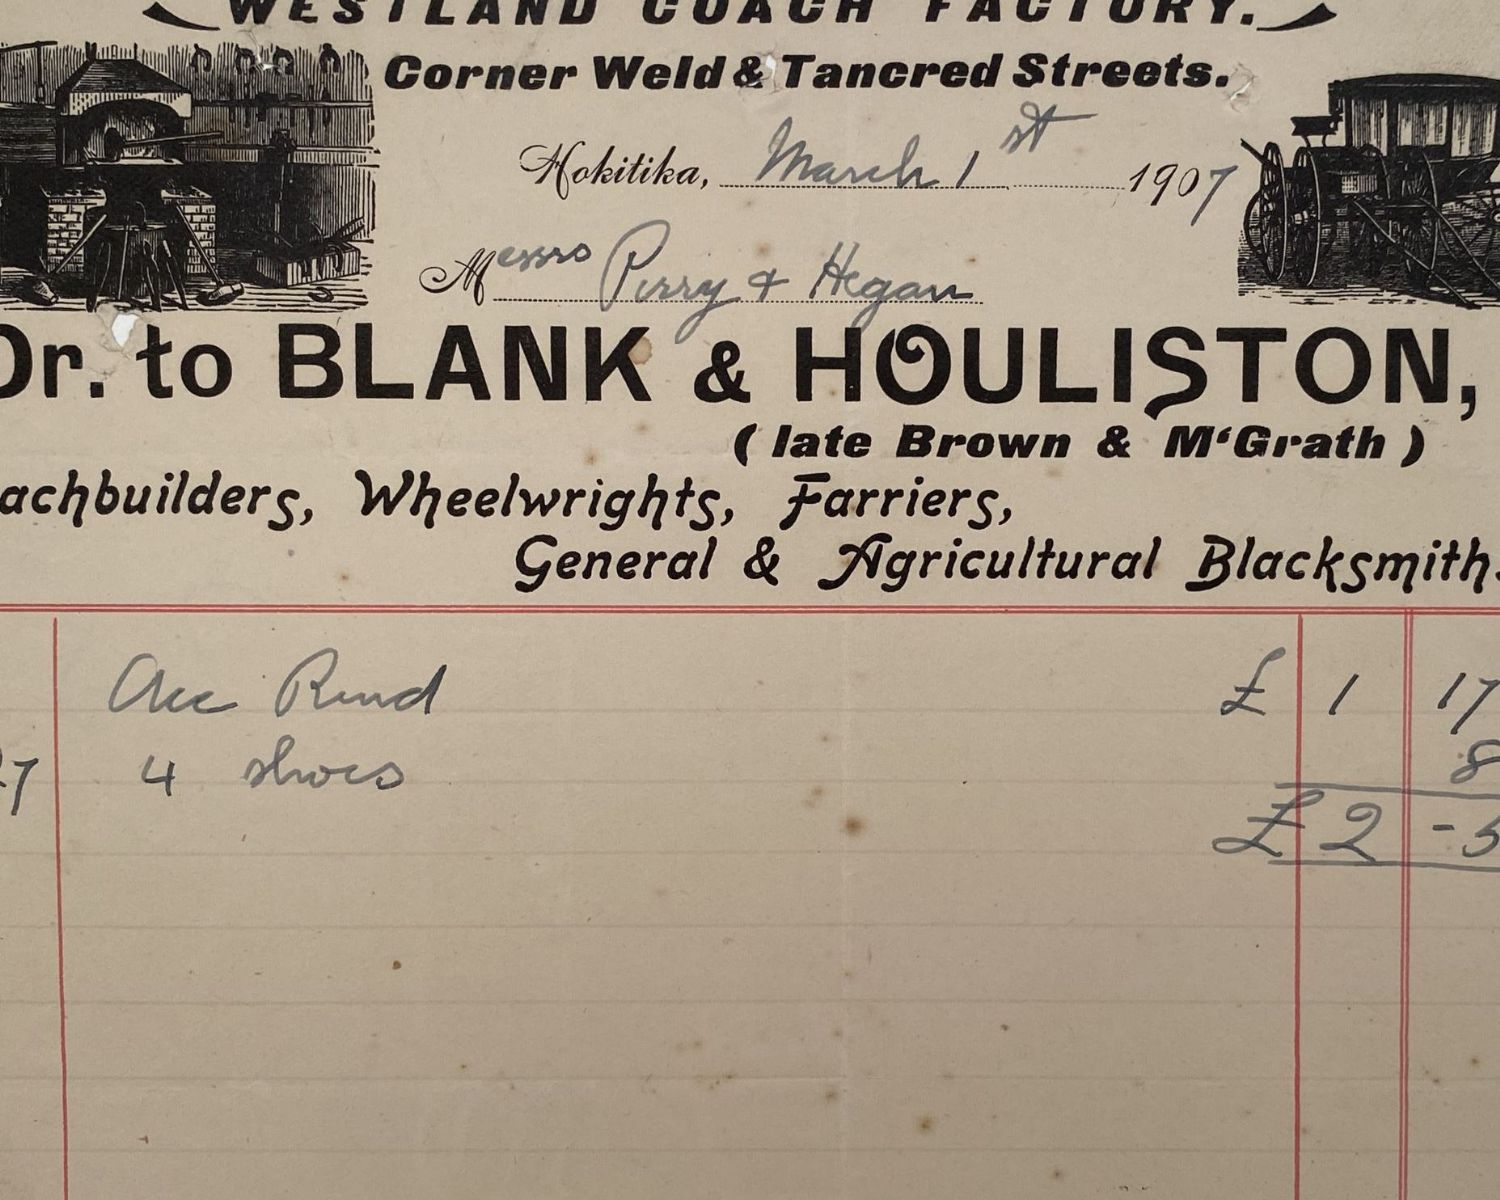 WESTLAND COACH FACTORY.
Corner Weld & Tancred Streets.
Hokitika, March 1st 1907
Messrs Perry & Hegan
Dr. to BLANK & HOULISTON,
(late Brown & M‘Grath)
achbuilders, Wheelwrights, Farriers,
General & Agricultural Blacksmiths
Acc Rend £ 1 17
27 4 shoes 8
£ 2 - 5